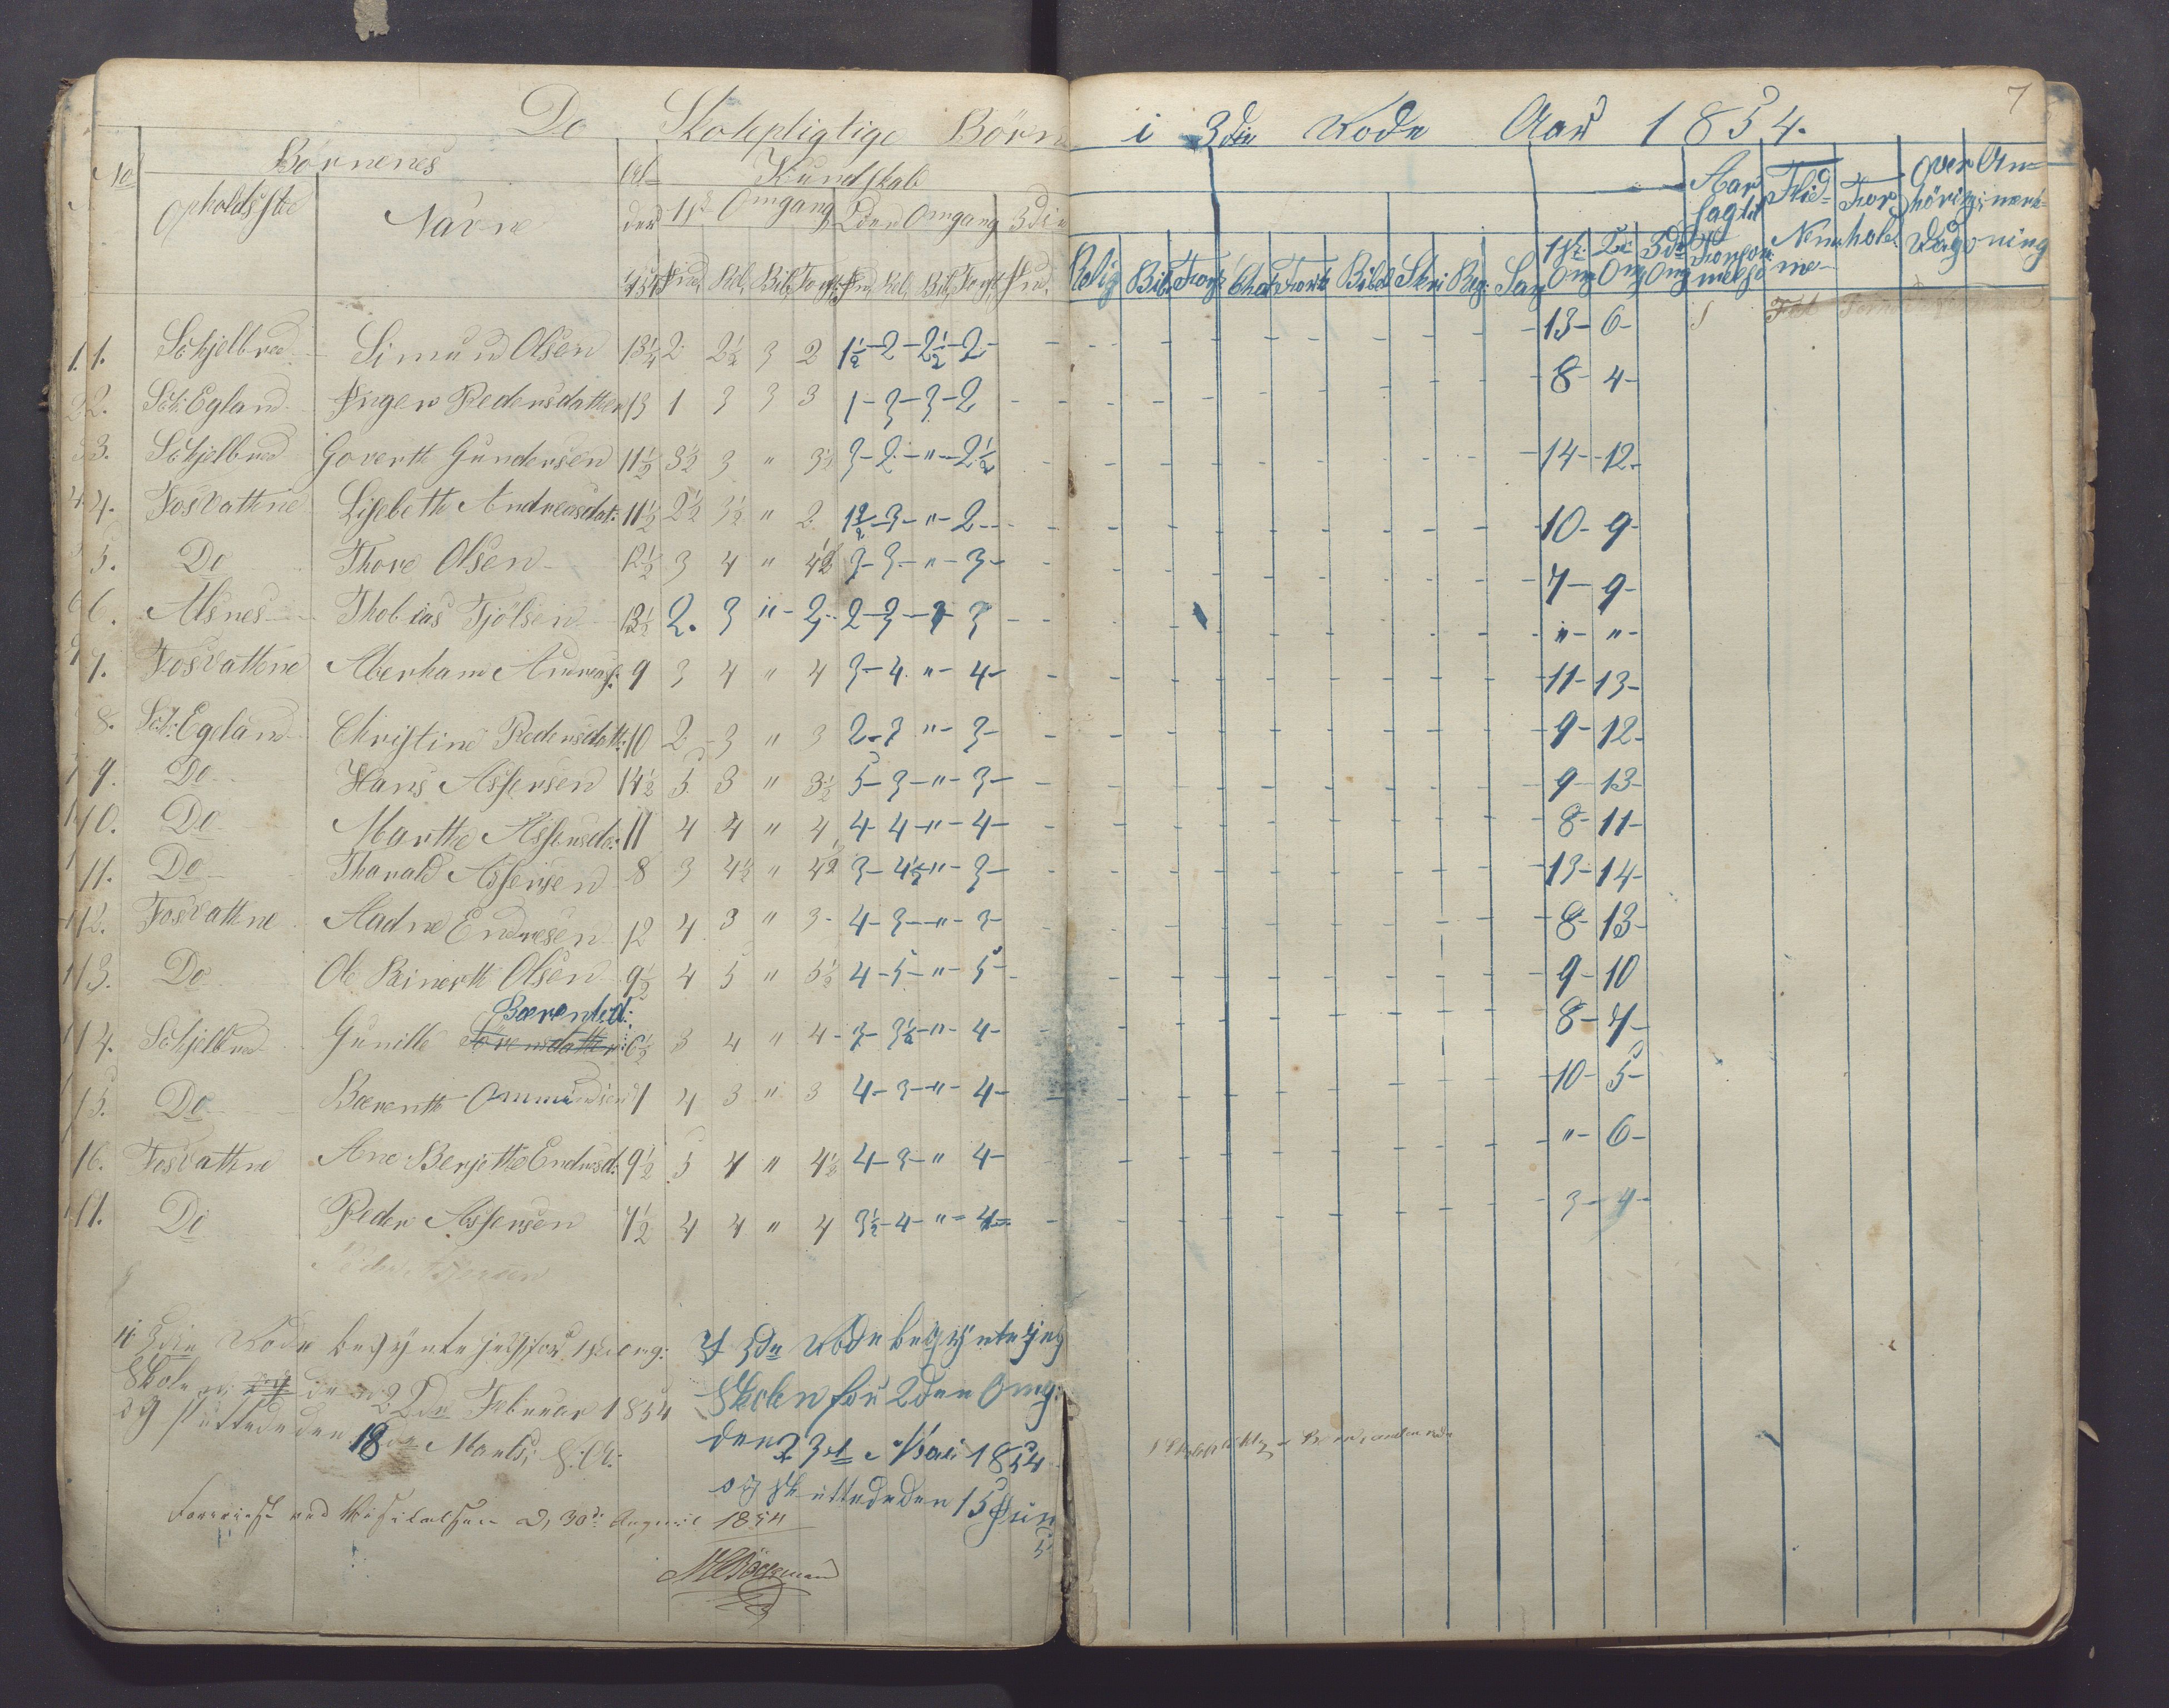 De Skolepligtige Börn i 3die Rode Aar 1854. 7
No Börnenes Kundskab
Opholdsstæd Navne 1ste Omgang 2den Omgang 3die
Relig Bib Skri Reg: San 1ste Omg 3die Omg
1. 1. Sökjelbred Simund Olsen 13¼ 2 2½ 3 2 1½-2-2½-2- 13-6-
2. Sök: Egland Inger Pedersdatter 13 1 3 3 3 1-3-3-2 8-4-
3. Sökjelbred Goverth Gundersen 11½ 3½ 3 " 3½ 3-2-"-2½ 14-12-
4. Fosvathne Lisebeth Andreasdat: 11½ 2½ 3½ " 2 1½-3-"-2 10-9-
5. Do Thore Olsen 12½ 3 4 " 4½ 3-3-"-3- 7-9-
6. Alsnes Thobias Tjölsen 13½ 2. 3 " 2 2-3-3 "-"-
7. Fosvathne Aberham Andreass: 9 3 4 " 4 3-4-"-4- 11-13-
8. Sök: Egeland Christine Pedersdatt: 10 2 3 " 3 2-3 "-3- 9-12-
9. Do Hans Assersen 14½ 5 3 " 3½ 5-3-"-3- 9-13-
10. Do Marthe Assersda: 11 4 4 " 4 4-4-"-4- 8-11-
11. Do Tharald Assersen 8 3 4½ " 4½ 3-4½-"-3- 13-14-
12. Fosvathne Aadne Endresen 12 4 3 " 3- 4-3-"-3- 8-13-
13. Do Ole Reinerth Olsen 9½ 4 5 " 5½ 4-5-"-5- 9-10
Bærentsd:
14. Sökjelbred Gunille Sörensdatter 6½ 3 4 " 4- 3-3½-"-4- 8-7-
15. Do Bærenth Ommundsen 7 4 3 " 3 4-3-"-4- 10-5-
16. Fosvathne Ane Berjethe Endresd: 9½ 5 4 " 4½ 4-3-"-4- "-6-
17. Do Peder Assersen 7½ 4 4 " 4 3½-4-"-4- 3-4-
Peder Assersen
i 3die Rode begynte jeg for 1ste Omg:
Skole den 22de Februar 1854
og sluttede den 18de Marts; s: A:
I 3die Rode begynte jeg
Skolen for 2den Omg:
den 23de Mai 1854
og sluttede den 15 Juni
Foreviist ved Visitatsen d, 30te August 1854